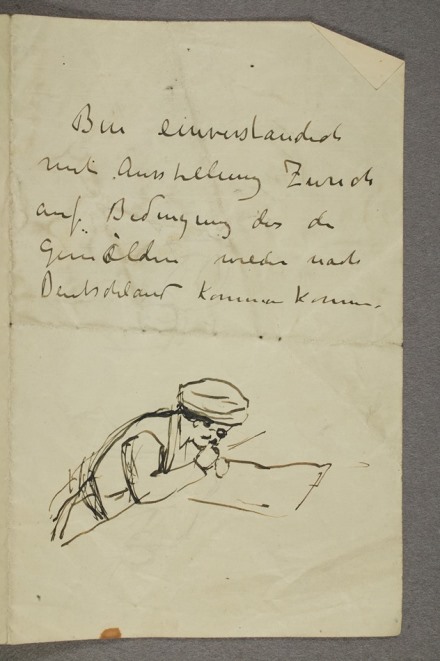 Bin einverstanded
mit Ausstellung Zurich
auf Bedingung das de
Gemälden wieder nach
Deutschland kommen können.